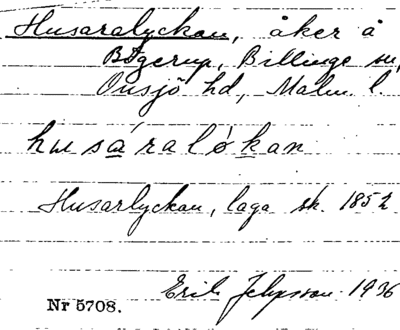 Husaralyckan, åker å
Bögerup, Billinge sn,
Onsjö hd, Malm. l.
husáralókan
Husarlyckan, laga sk. 1852
Erik Jeppsson 1936
Nr 5708.